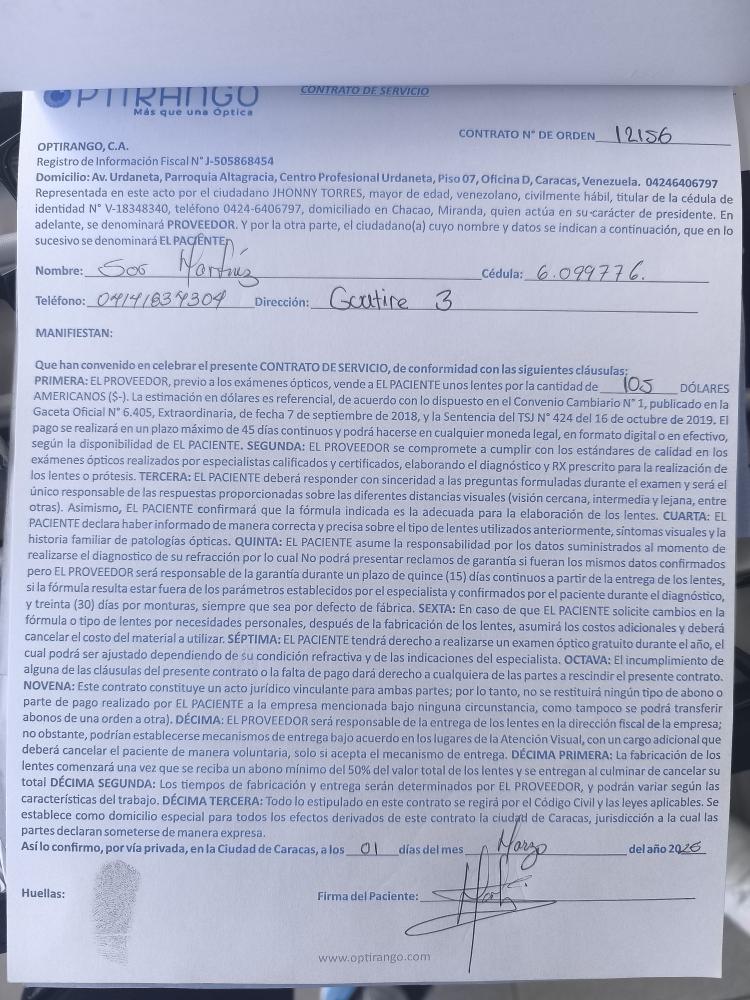 OPTIRANGO
CONTRATO DE SERVICIO
Más que una Óptica
CONTRATO N° DE ORDEN 12156
OPTIRANGO, C.A.
Registro de Información Fiscal N° J-505868454
Domicilio: Av. Urdaneta, Parroquia Altagracia, Centro Profesional Urdaneta, Piso 07, Oficina D, Caracas, Venezuela. 04246406797
Representada en este acto por el ciudadano JHONNY TORRES, mayor de edad, venezolano, civilmente hábil, titular de la cédula de
identidad N° V-18348340, teléfono 0424-6406797, domiciliado en Chacao, Miranda, quien actúa en su carácter de presidente. En
adelante, se denominará PROVEEDOR. Y por la otra parte, el ciudadano(a) cuyo nombre y datos se indican a continuación, que en lo
sucesivo se denominará EL PACIENTE,
Nombre: Cédula: 6.099776.
Teléfono: 04141834304 Dirección: 3
MANIFIESTAN:
Que han convenido en celebrar el presente CONTRATO DE SERVICIO, de conformidad con las siguientes cláusulas:
PRIMERA: EL PROVEEDOR, previo a los exámenes ópticos, vende a EL PACIENTE unos lentes por la cantidad de 105 DÓLARES
AMERICANOS ($-). La estimación en dólares es referencial, de acuerdo con lo dispuesto en el Convenio Cambiario N° 1, publicado en la
Gaceta Oficial N° 6.405, Extraordinaria, de fecha 7 de septiembre de 2018, y la Sentencia del TSJ N° 424 del 16 de octubre de 2019. El
pago se realizará en un plazo máximo de 45 días continuos y podrá hacerse en cualquier moneda legal, en formato digital o en efectivo,
según la disponibilidad de EL PACIENTE. SEGUNDA: EL PROVEEDOR se compromete a cumplir con los estándares de calidad en los
exámenes ópticos realizados por especialistas calificados y certificados, elaborando el diagnóstico y RX prescrito para la realización de
los lentes o prótesis. TERCERA: EL PACIENTE deberá responder con sinceridad a las preguntas formuladas durante el examen y será el
único responsable de las respuestas proporcionadas sobre las diferentes distancias visuales (visión cercana, intermedia y lejana, entre
otras). Asimismo, EL PACIENTE confirmará que la fórmula indicada es la adecuada para la elaboración de los lentes. CUARTA: EL
PACIENTE declara haber informado de manera correcta y precisa sobre el tipo de lentes utilizados anteriormente, síntomas visuales y la
historia familiar de patologías ópticas. QUINTA: EL PACIENTE asume la responsabilidad por los datos suministrados al momento de
realizarse el diagnostico de su refracción por lo cual No podrá presentar reclamos de garantía si fueran los mismos datos confirmados
pero EL PROVEEDOR será responsable de la garantía durante un plazo de quince (15) días continuos a partir de la entrega de los lentes,
si la fórmula resulta estar fuera de los parámetros establecidos por el especialista y confirmados por el paciente durante el diagnóstico,
y treinta (30) días por monturas, siempre que sea por defecto de fábrica. SEXTA: En caso de que EL PACIENTE solicite cambios en la
fórmula o tipo de lentes por necesidades personales, después de la fabricación de los lentes, asumirá los costos adicionales y deberá
cancelar el costo del material a utilizar. SÉPTIMA: EL PACIENTE tendrá derecho a realizarse un examen óptico gratuito durante el año, el
cual podrá ser ajustado dependiendo de su condición refractiva y de las indicaciones del especialista. OCTAVA: El incumplimiento de
alguna de las cláusulas del presente contrato o la falta de pago dará derecho a cualquiera de las partes a rescindir el presente contrato.
NOVENA: Este contrato constituye un acto jurídico vinculante para ambas partes; por lo tanto, no se restituirá ningún tipo de abono o
parte de pago realizado por EL PACIENTE a la empresa mencionada bajo ninguna circunstancia, como tampoco se podrá transferir
abonos de una orden a otra). DÉCIMA: EL PROVEEDOR será responsable de la entrega de los lentes en la dirección fiscal de la empresa;
no obstante, podrían establecerse mecanismos de entrega bajo acuerdo en los lugares de la Atención Visual, con un cargo adicional que
deberá cancelar el paciente de manera voluntaria, solo si acepta el mecanismo de entrega. DÉCIMA PRIMERA: La fabricación de los
lentes comenzará una vez que se reciba un abono mínimo del 50% del valor total de los lentes y se entregan al culminar de cancelar su
total DÉCIMA SEGUNDA: Los tiempos de fabricación y entrega serán determinados por EL PROVEEDOR, y podrán variar según las
características del trabajo. DÉCIMA TERCERA: Todo lo estipulado en este contrato se regirá por el Código Civil y las leyes aplicables. Se
establece como domicilio especial para todos los efectos derivados de este contrato la ciudad de Caracas, jurisdicción a la cual las
partes declaran someterse de manera expresa.
Así lo confirmo, por vía privada, en la Ciudad de Caracas, a los 01 días del mes Marzo del año 2026
Huellas: Firma del Paciente:
www.optirango.com